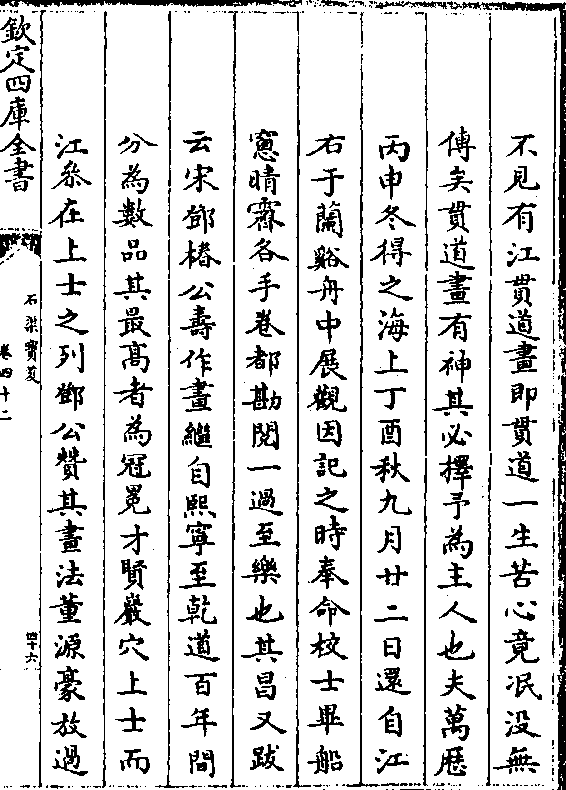 不見有江貫道畫即貫道一生苦心竟泯没無
傳矣貫道畫有神其必擇予為主人也夫萬厯
丙申冬得之海上丁酉秋九月廿二日還自江
右于蘭谿舟中展觀因記之時奉命校士畢船
窻晴霽各手卷都勘閲一過至樂也其昌又跋
云宋鄧椿公壽作畫繼自熙寧至乾道百年間
分為數品其最髙者為冠冕才賢巖穴上士而
江叅在上士之列鄧公贊其畫法董源豪放過
欽定四庫全書
石渠寶笈
卷四十二
四十六